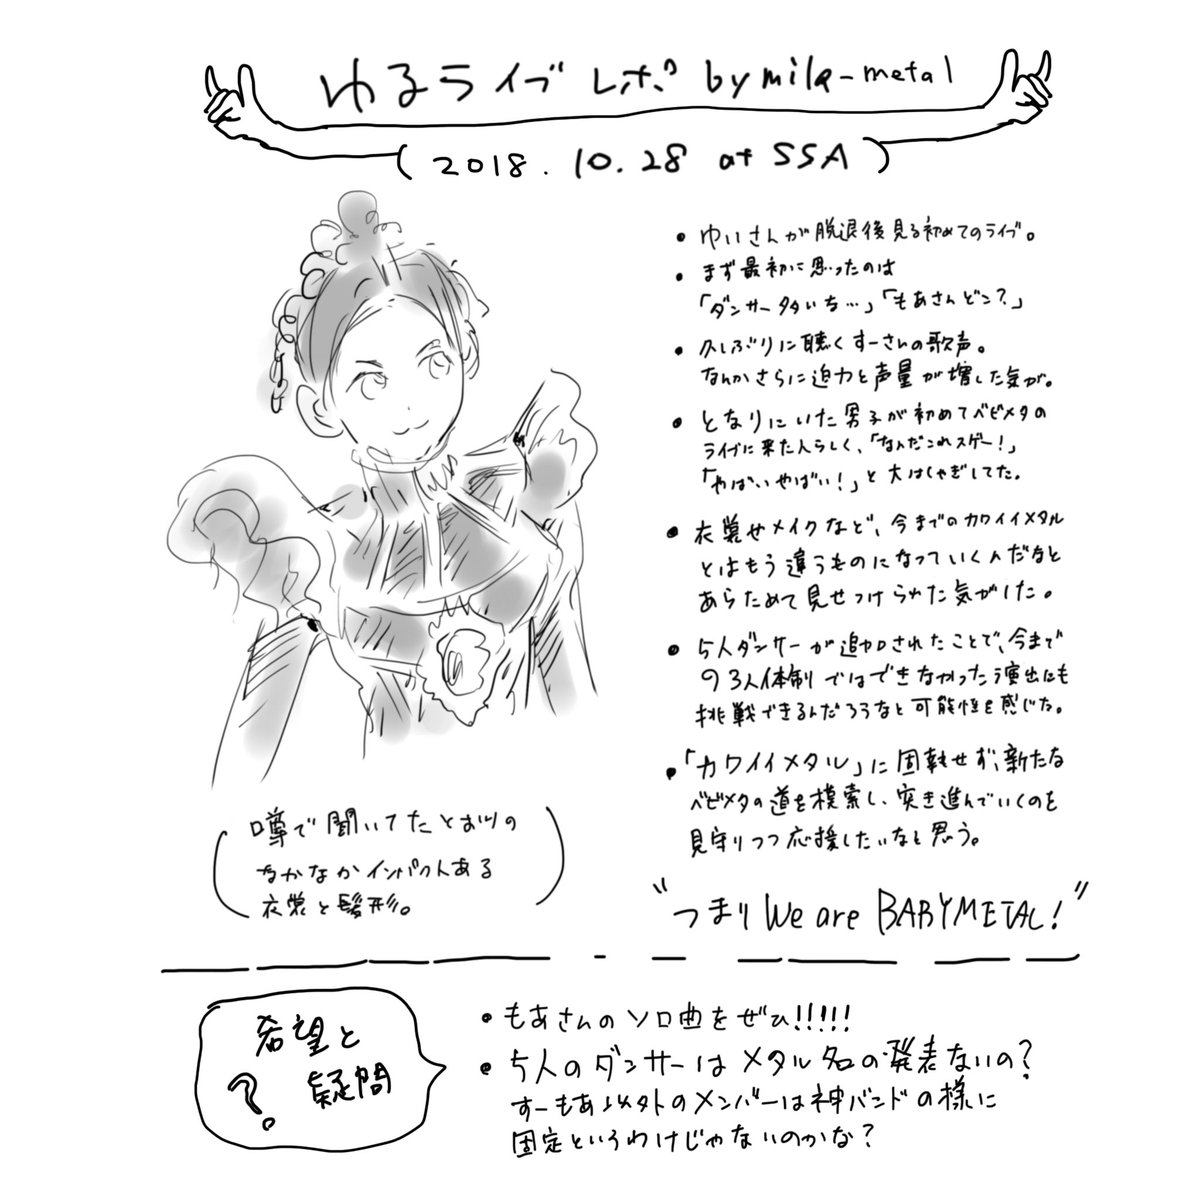 ゆるライブレポ by mila-metal
(2018.10.28 at SSA)
・ゆいさんが脱退後見る初めてのライブ。
・まず最初に思ったのは
「ダンサー多いな…」「もあさんどこ?」
・久しぶりに聴くすーさんの歌声。
なんかさらに迫力と声量が増した気が。
・となりにいた男子が初めてベビメタの
ライブに来た人らしく、「なんだこれスゲー!」
「やばいやばい!」と大はしゃぎしてた。
・衣裳やメイクなど、今までのカワイイメタル
とはもう違うものになっていくんだなと
あらためて見せつけられた気がした。
・5人ダンサーが追加されたことで、今まで
の3人体制ではできなかった演出にも
挑戦できるんだろうなと可能性を感じた。
・「カワイイメタル」に固執せず、新たな
ベビメタの道を模索し、突き進んでいくのを
見守りつつ応援したいなと思う。
"つまりWe are BABYMETAL!"
(噂で聞いてたとおりの
なかなかインパクトある
衣裳と髪形。)
希望と
?疑問
・もあさんのソロ曲をぜひ!!!!!
・5人のダンサーはメタル名の発表ないの?
すーもあ以外のメンバーは神バンドの様に
固定というわけじゃないのかな?